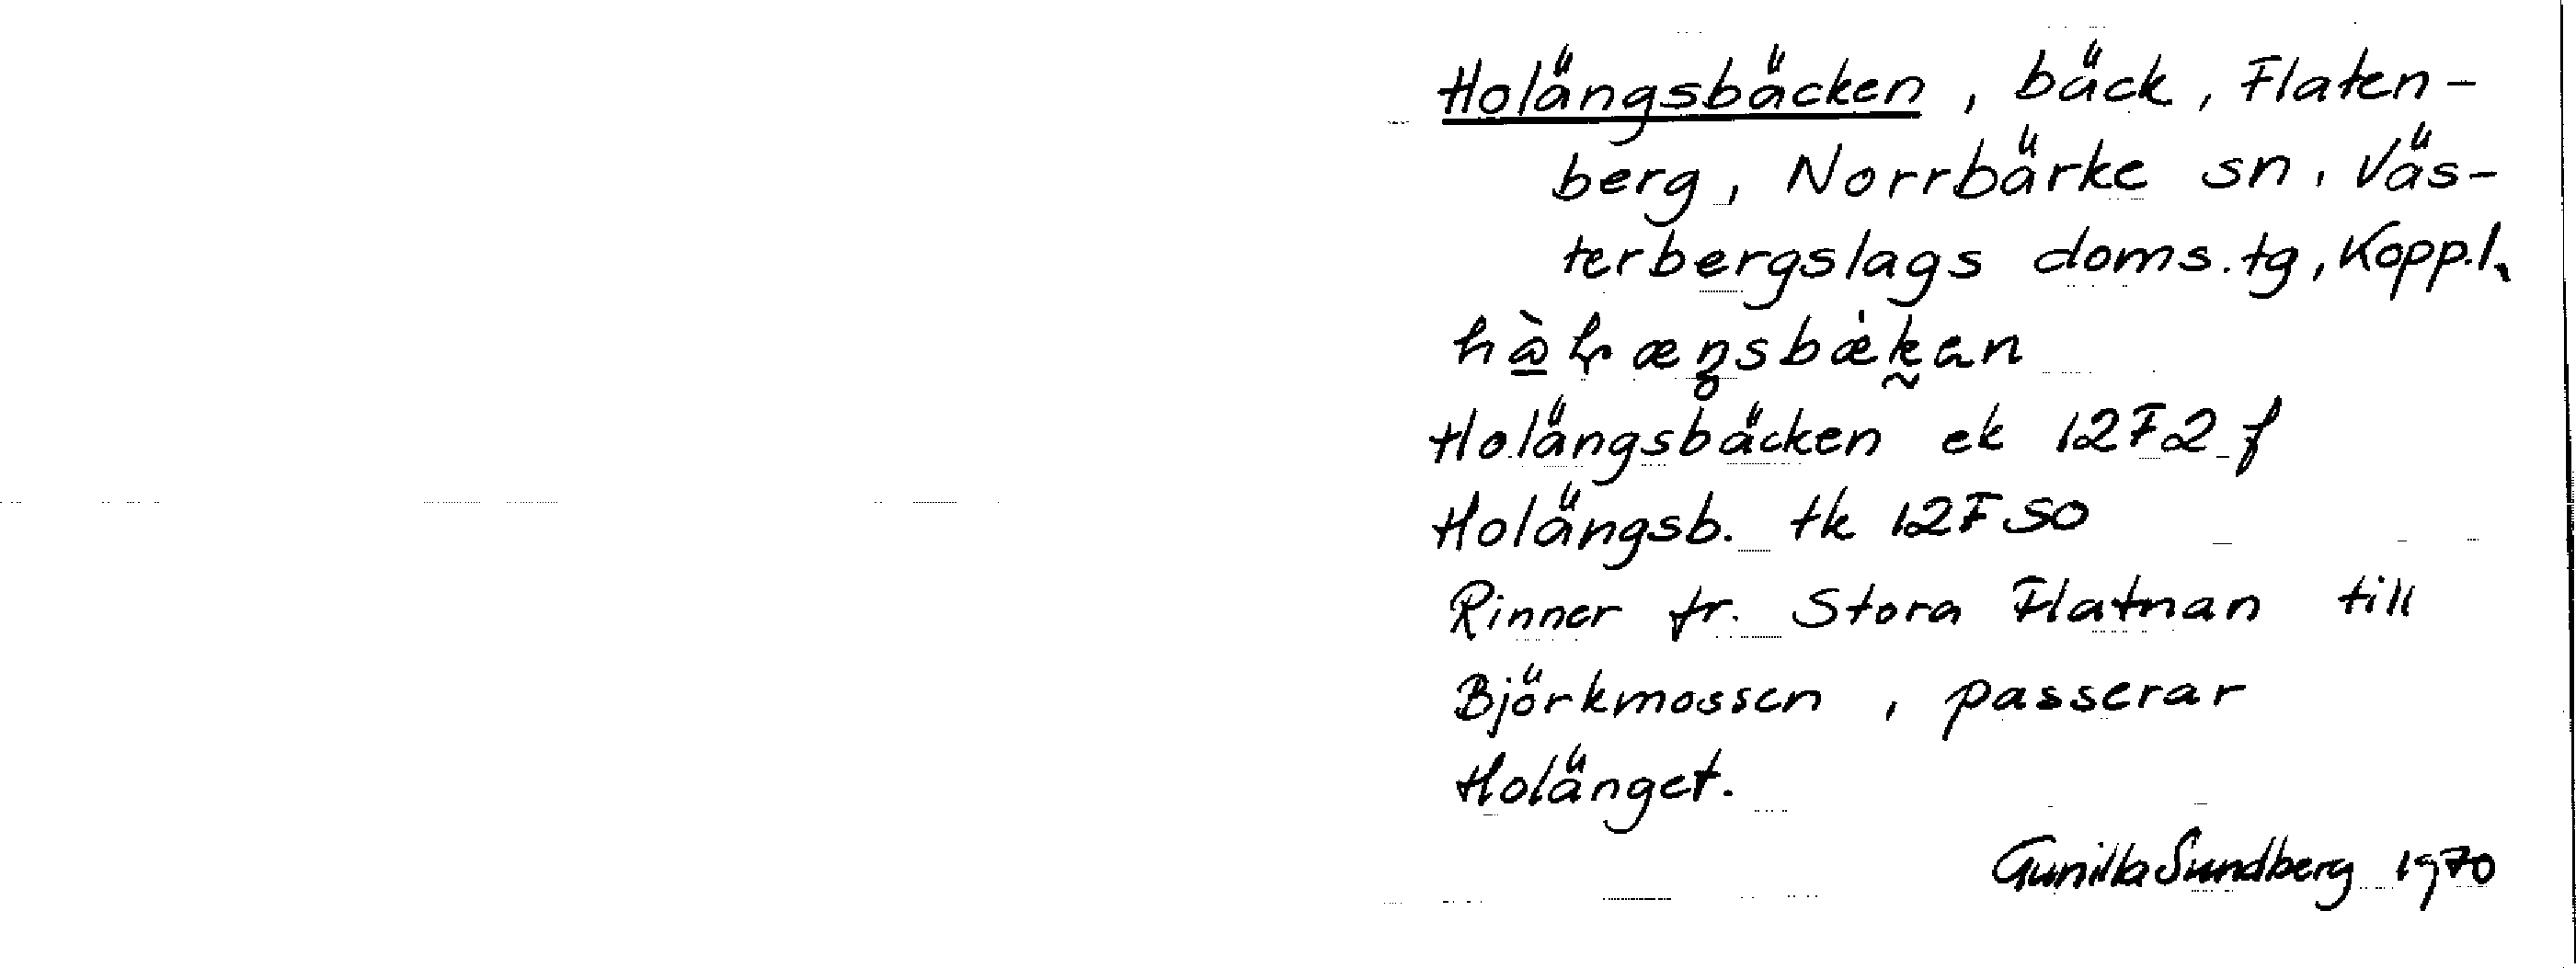 Holängsbäcken, bäck, Flaten-
berg, Norrbärke sn, Väs-
terbergslags doms.tg, Kopp.l.
Holängsbäcken ek 12F2f
Holängsb. tk 12F SO
Rinner fr. Stora Flatnan till
Björkmossen, passerar
Holänget.
Gunilla Sundberg 1970